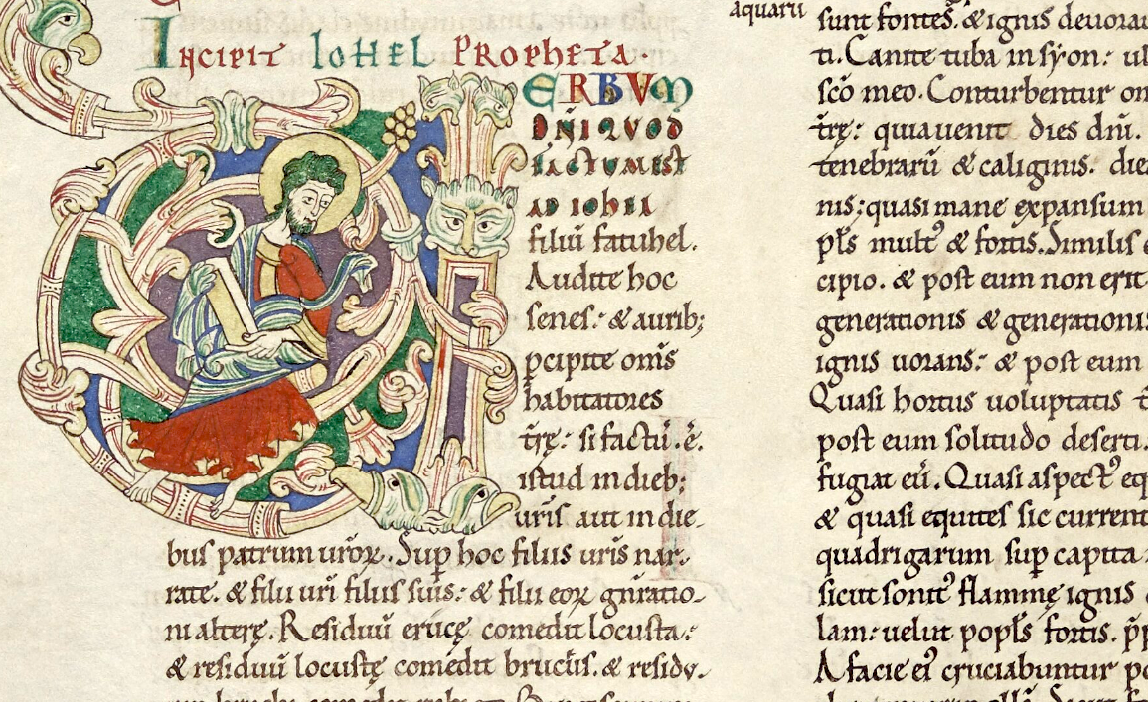 INCIPIT IOHEL PROPHETA.
ERBVM
DN̄I QVOD
FACTVM EST
AD IOHEL
filiū fatuhel.
Audite hoc
senes: & aurib;
p̄cipite om̄s
habitatores
t̄rę: si factū .ē.
istud in dieb;
ur̄is aut in die-
bus patrum ur̄oꝝ. Sup̄ hoc filiis ur̄is nar-
rate. & filii ur̄i filiis suis: & filii eoꝝ gn̄ratio-
ni alterę. Residuū erucę comedit locusta:
& residuū locustę comedit bruc̄s. & residu-
aquarū
sunt fontes. & ignis deuora
ti. Canite tuba in sẏon: ul
sc̄o meo. Conturbentur om
t̄rę: quia uenit dies dn̄i.
tenebrarū & caliginis. die
nis: quasi mane expansum
pl̄s mult᷒ & fortis. Similis
cipio. & post eum non erit
generationis & generationis
ignis uorans: & post eum
Quasi hortus uoluptatis t̄
post eum solitudo deserti.
fugiat eū. Quasi aspect᷒ eq
& quasi equites sic current
quadrigarum sup̄ capita
sicut sonit᷒ flammę ignis
lam: uelut popl̄s fortis. p̄p
A facie ei᷒ cruciabuntur po